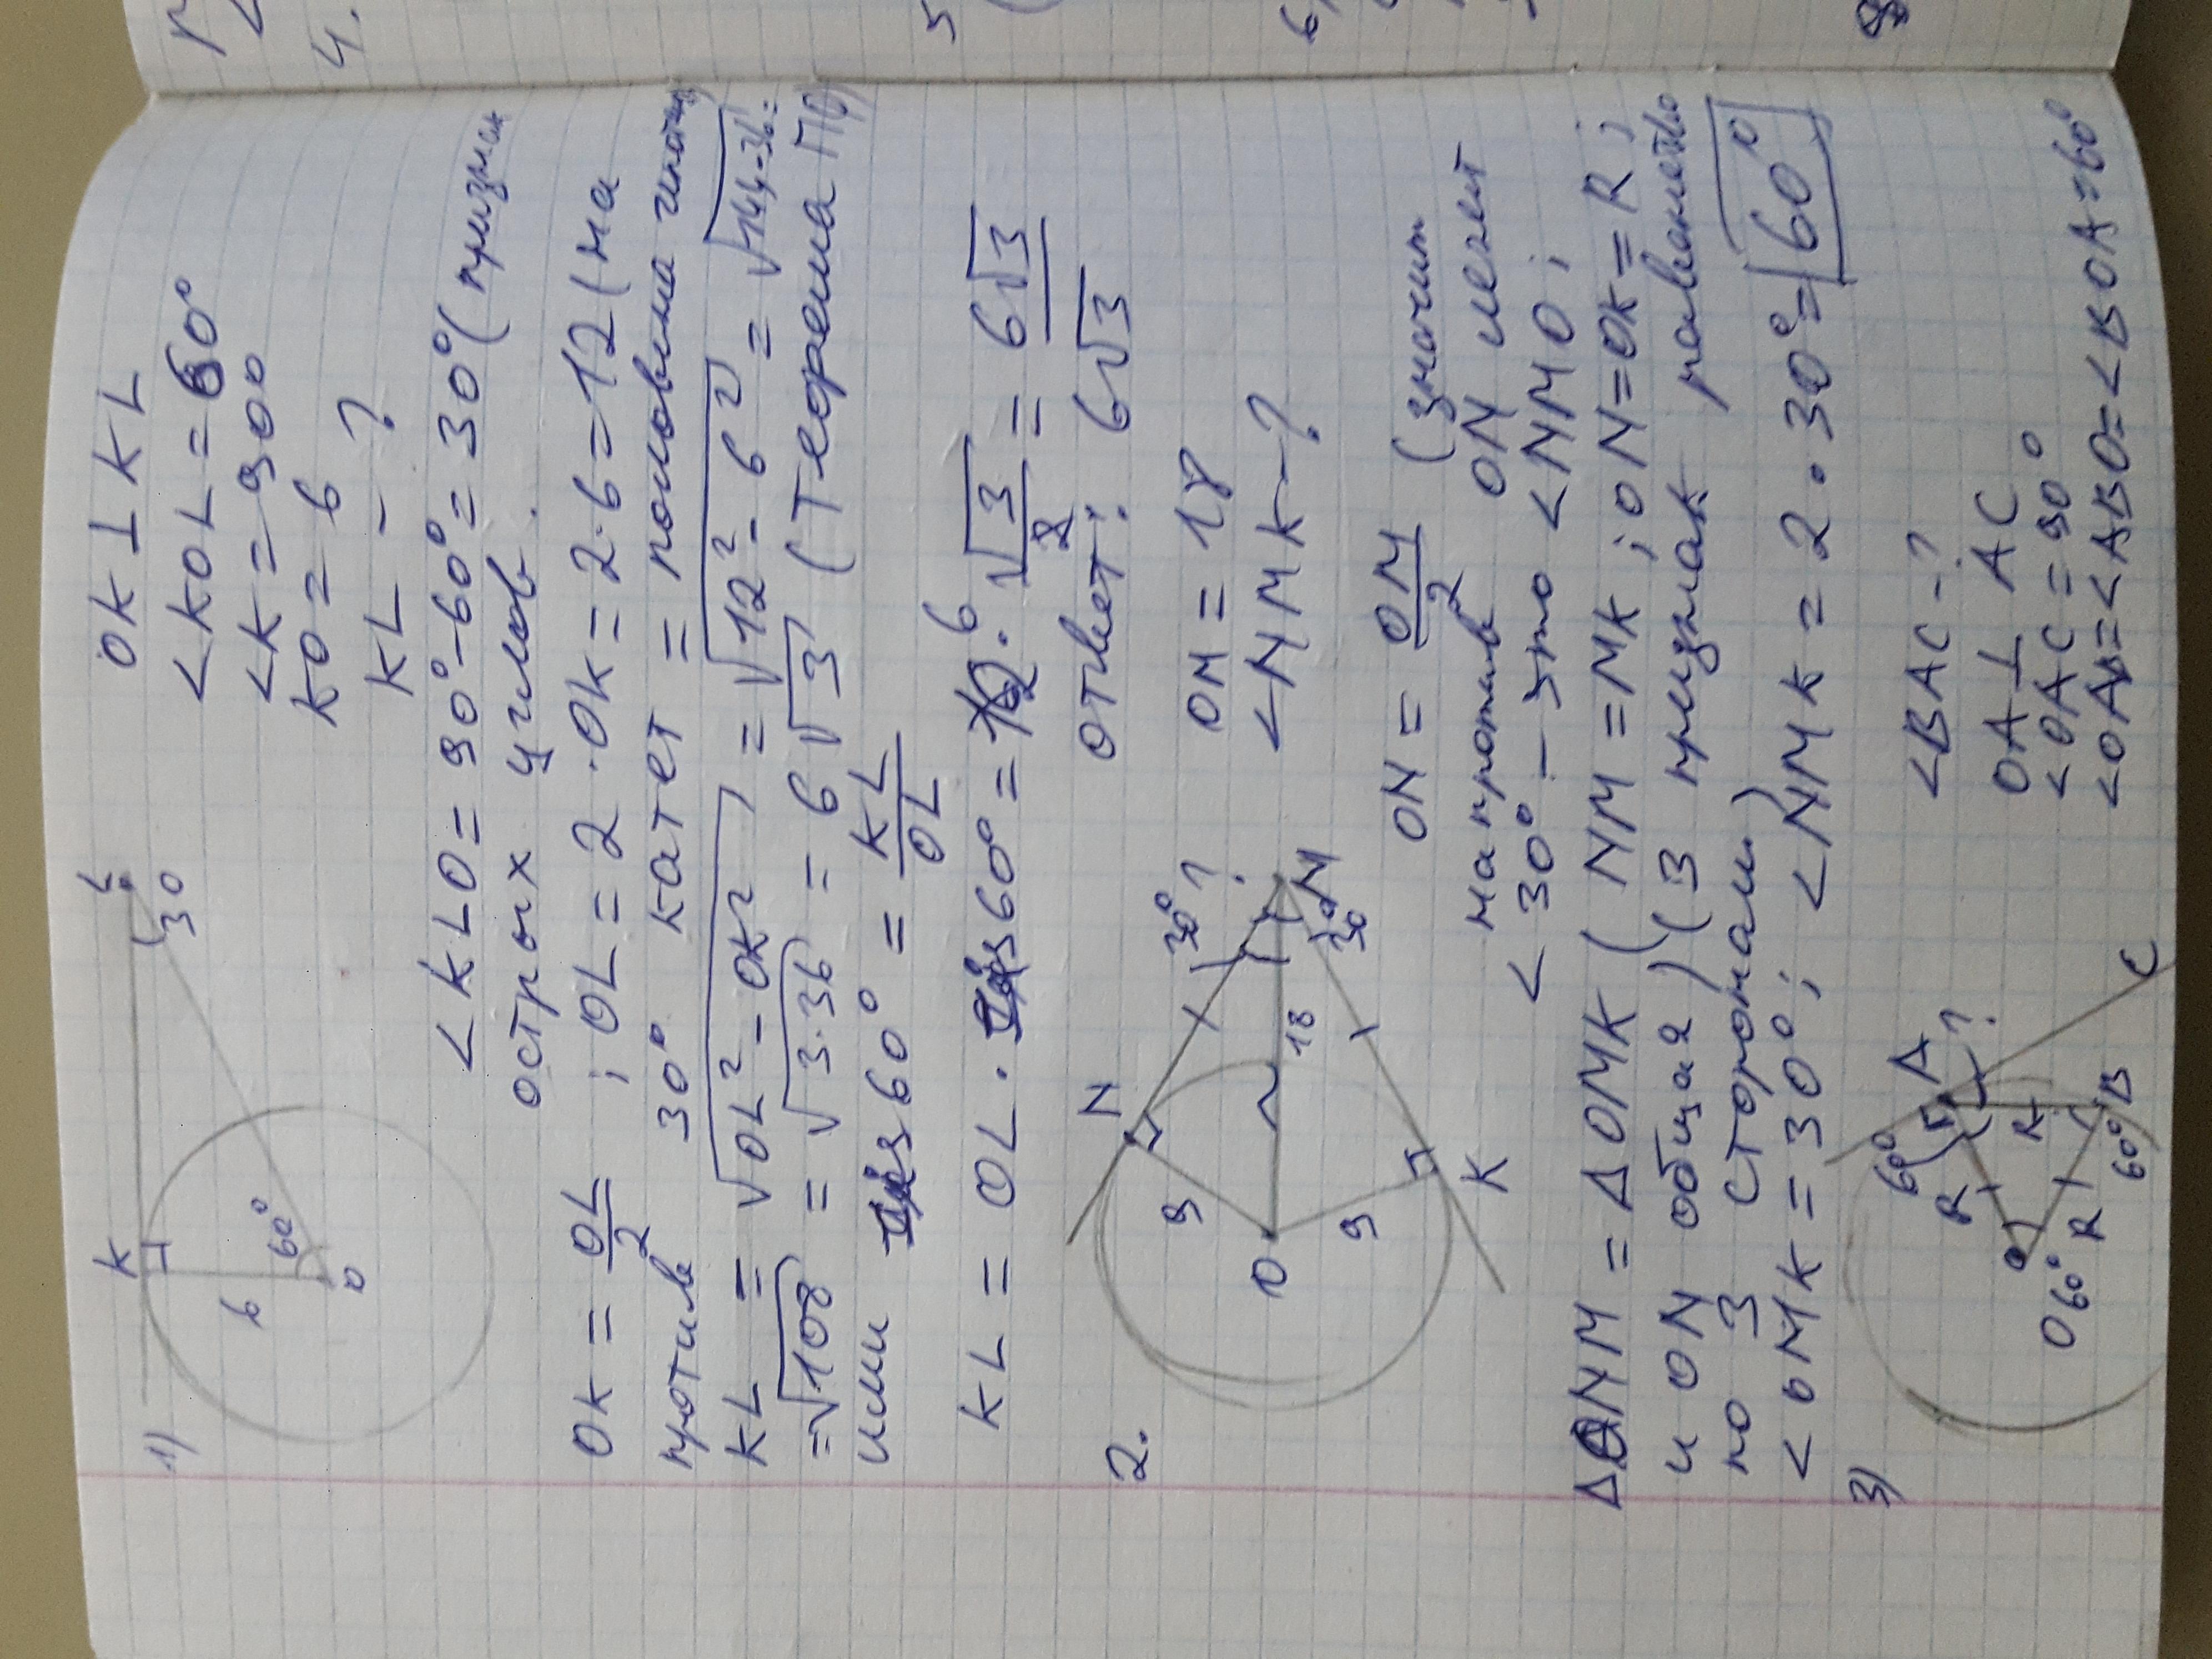 1)
K
L
30
6
60°
O
OK ⊥ KL
<KOL = 60°
<K = 90°
KO = 6
KL - ?
<KLO = 90° - 60° = 30° (признак
острых углов.
OK = OL/2 ; OL = 2 · OK = 2·6 = 12 (на
против 30° катет = половина гипотенуз
KL = √OL² - OK² = √12² - 6² = √144-36 =
= √108 = √3·36 = 6√3 (Теорема Пиф
или sin 60° = KL/OL
KL = OL · sin 60° = 12 · √3/2 = 6√3
6
Ответ: 6√3
2.
N
30°?
M
30°
18
9
O
9
K
OM = 18
<NMK-?
ON = OM/2 (значит
напротив ON лежит
<30° - это <NMO;
ΔONM = ΔOMK (NM = MK; ON = OK = R;
и ON общая) (3 признак равенства
по 3 сторонам)
<OMK = 30°; <NMK = 2·30° = 60°
3)
60°
A
?
R
R
O 60°
R
60°
B
C
<BAC-?
OA ⊥ AC
<OAC = 90°
<OAB = <ABO = <BOA = 60°
4.
5
6